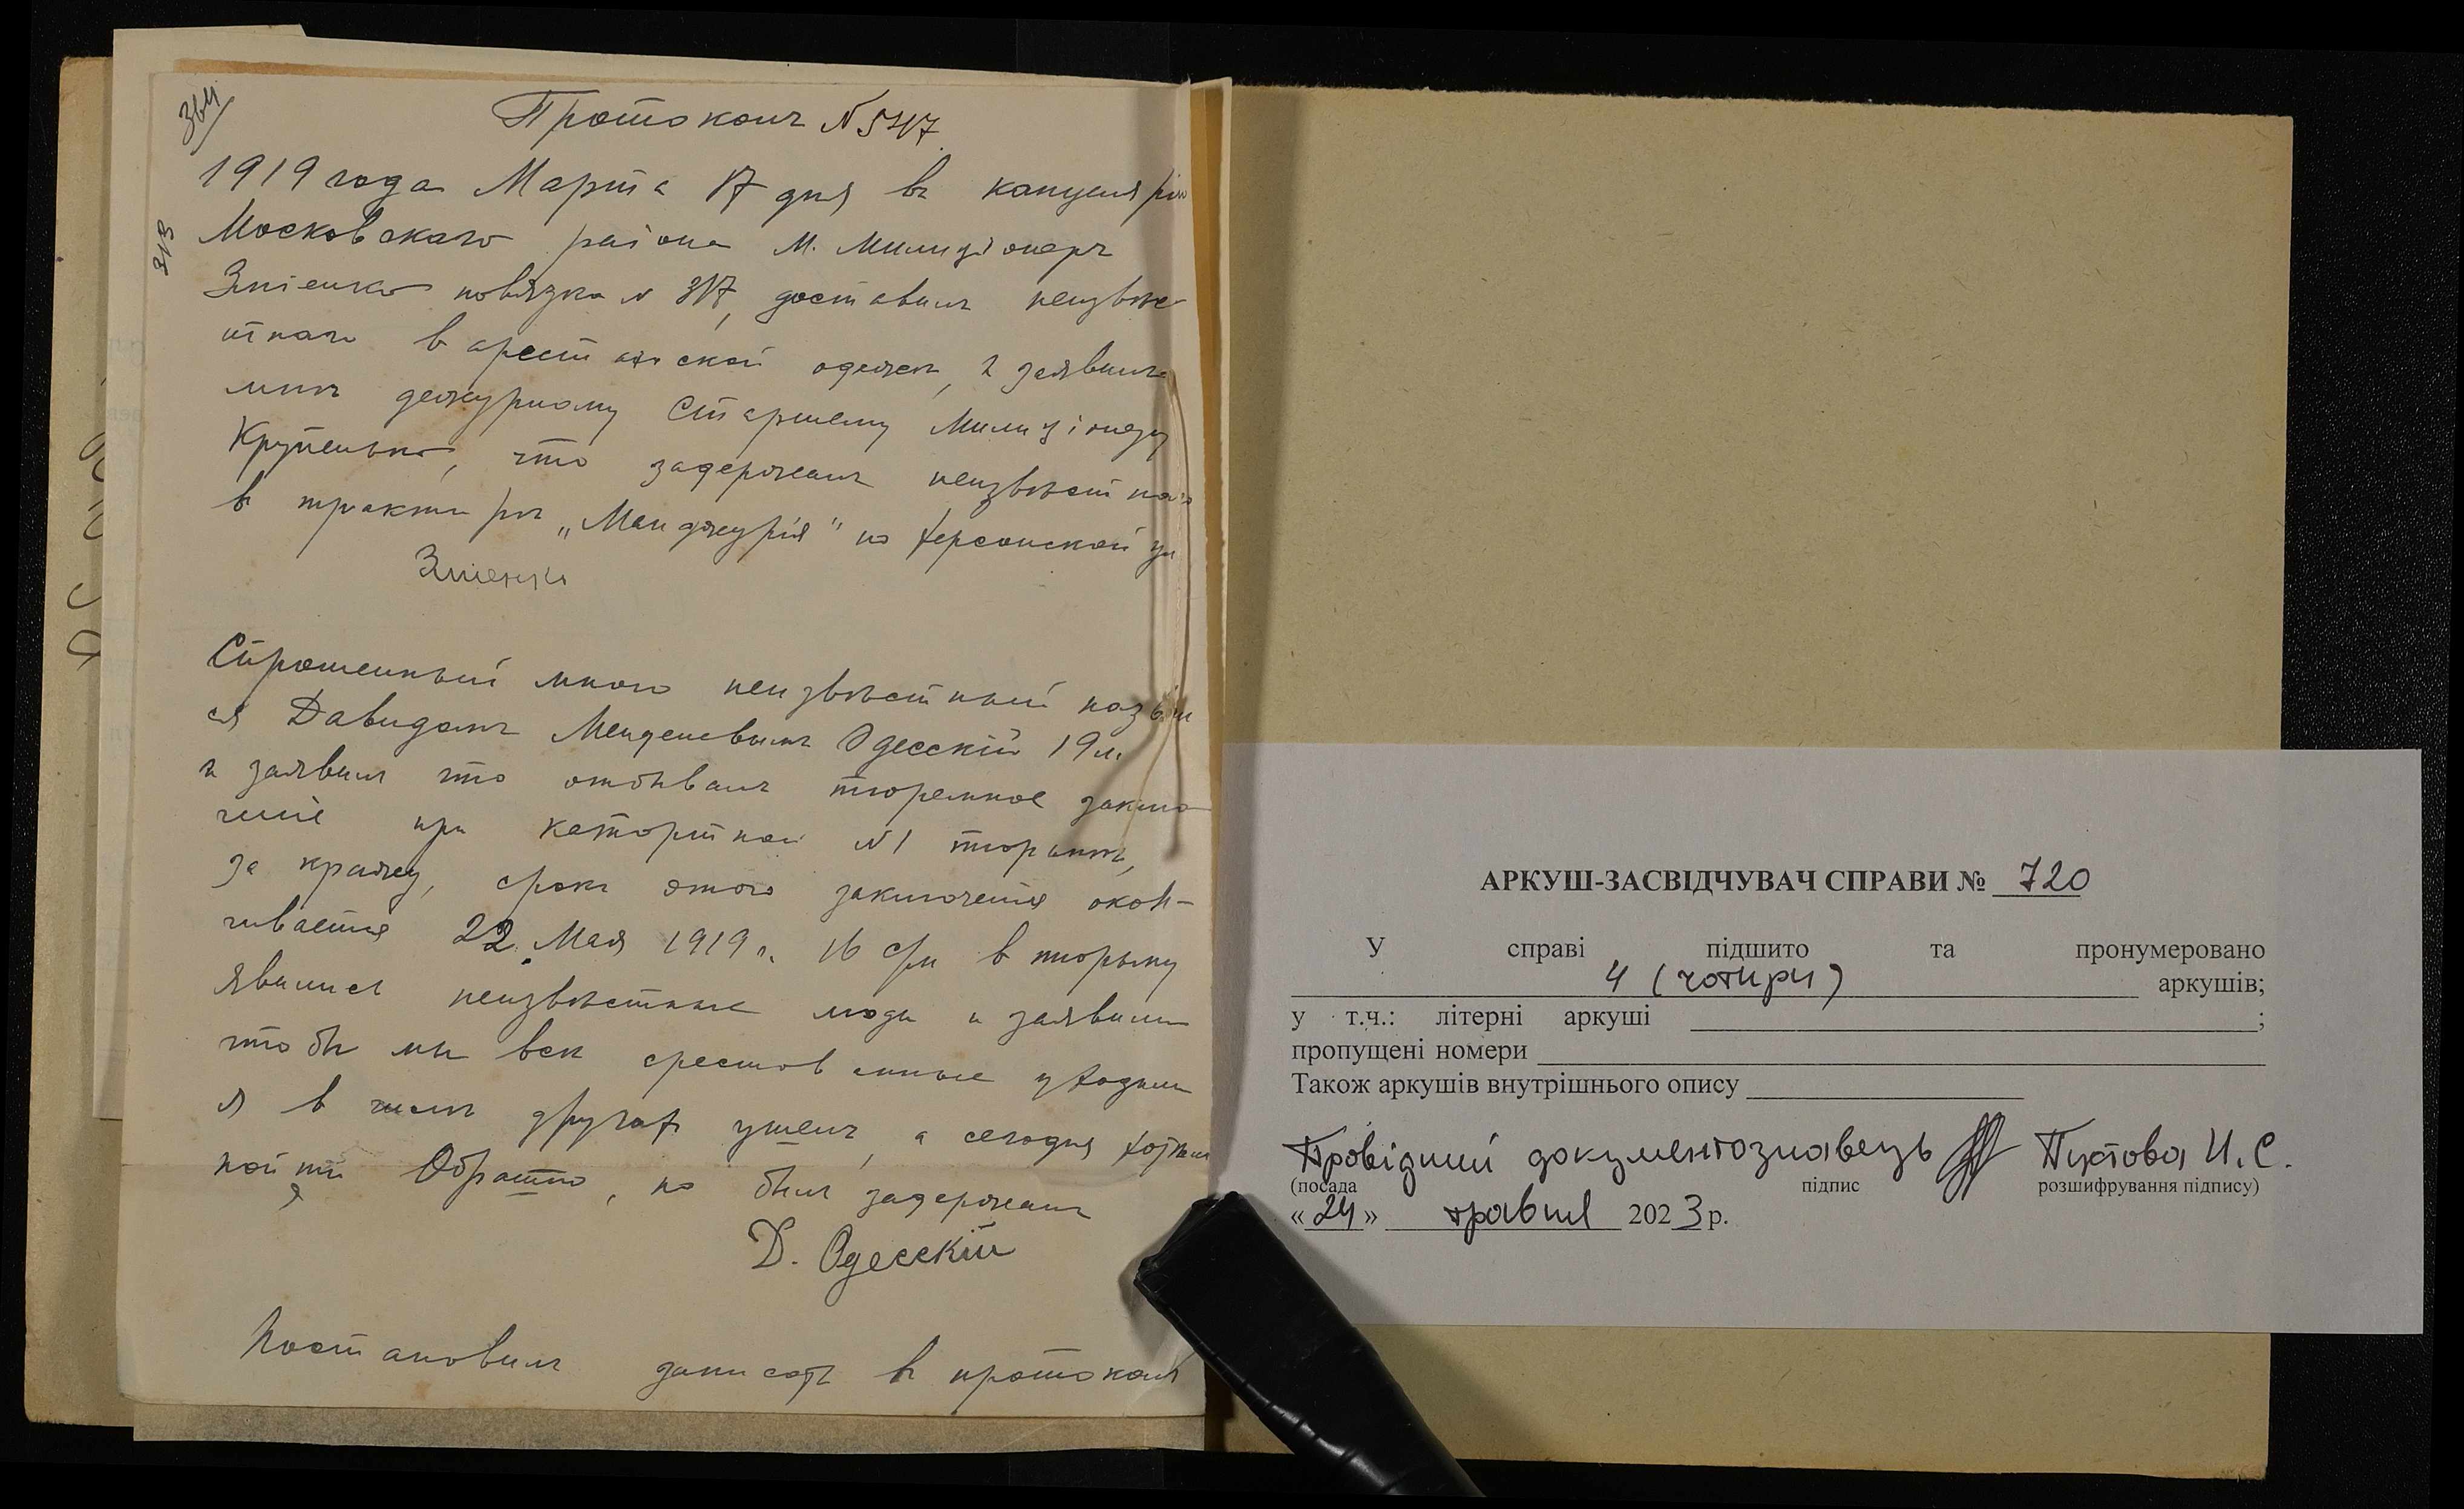 364
313
Протоколъ N 547
1919 года Марта 17 дня въ канцелярiи
Московскаго раiона М. Милицiонеръ
Змiенко повязка N 317, доставилъ неизвѣс
тнаго в арестанской одежѣ, и заявилъ
мнѣ дежурному Старшему Милицiонеру
Крупенько, что задержалъ неизвѣстнаго
въ трактирѣ „Манджурiя" по Херсонской ул
Змiенко
Спрошенный мною неизвѣстный назвался
ся Давидомъ Менделевымъ Одесскiй 19 л.
и заявилъ что отбывалъ тюремное заклю
ченiе при каторжной N 1 тюрьмѣ,
за кражу, срокъ этого заключенiя окон-
чивается 22 Мая 1919 г. 16 с/м в тюрьму
явились неизвѣстные люди и заявили
чтобы мы всѣ арестованные уходили
я в числѣ другихъ ушелъ, а сегодня хотѣлъ
пойти Обратно, но былъ задержанъ
я
Д. Одесскiй
Постановилъ записать въ протоколъ
АРКУШ-ЗАСВІДЧУВАЧ СПРАВИ № 720
У справі підшито та пронумеровано
4 (чотири) аркушів;
у т.ч.: літерні аркуші ;
пропущені номери
Також аркушів внутрішнього опису
Провідний документознавець Пустова И. С.
(посада підпис розшифрування підпису)
« 24 » травня 2023 р.